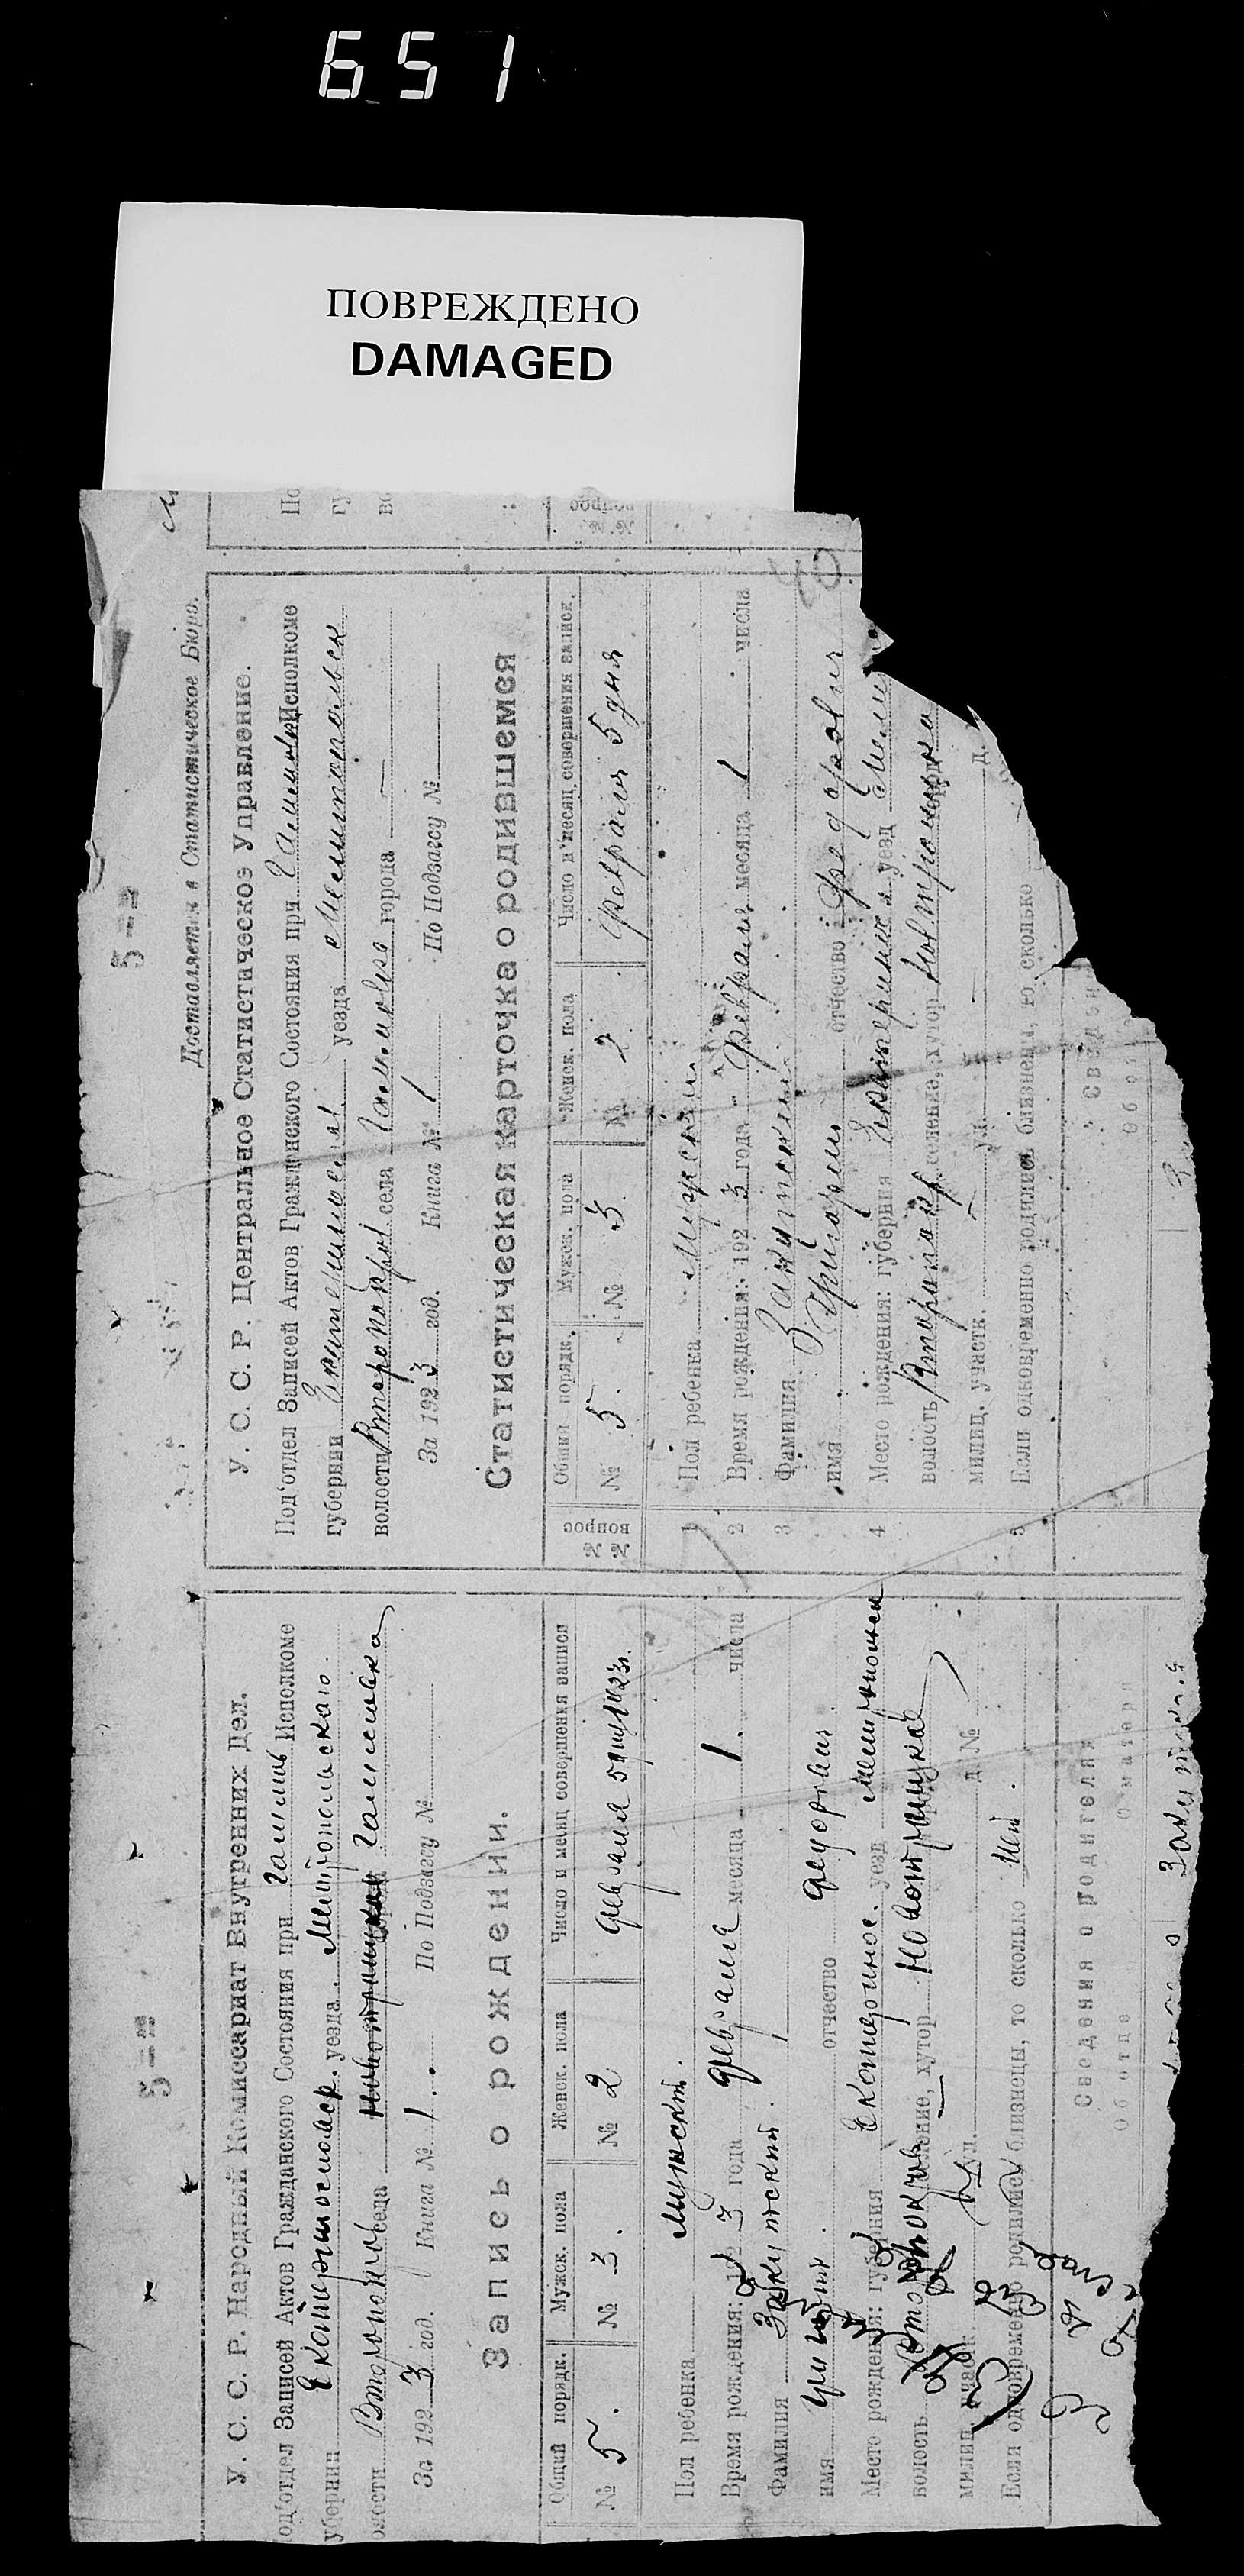 651
ПОВРЕЖДЕНО
DAMAGED
5—
У. С. С. Р. Народный Комиссариат Внутренних Дел.
од'отдел Записей Актов Гражданского Состояния при Исполкоме
убернии Екатеринослав. уезда Мелитопольского
олости Второпокров села Гамовка
За 1923 год. Книга № 1. По Подзагсу №
Запись о рождении.
Общий порядк. Мужск. пола Женск. пола Число и месяц совершения записи
№ 5. № 3. № 2 февраля 5 дня 1923г.
Пол ребенка мужской.
Время рождения: 192 3 года февраля месяца 1. числа
Фамилия Закутский
имя Григорий отчество Федорович
Место рождения: губерния Екатеринос. уезд Мелитопольск
волость Второпокров селение, хутор Новотроицкое
милиц. участк. ул. д. №
Если одновременно родились близнецы, то сколько нет.
Сведения о родителях
О б отце О матери
Закутская
5—
Доставляется в Статистическое Бюро.
У. С. С. Р. Центральное Статистическое Управление.
Под'отдел Записей Актов Гражданского Состояния при Исполкоме
губернии Екатеринослав. уезда Мелитопольск
волости Второпокров села города —
За 1923 год. Книга № 1 По Подзагсу №
Статистическая карточка о родившемся
№№ вопрос Общий порядк. Мужск. пола Женск. пола Число и месяц совершения записи.
№ 5. № 3. № 2. Февраля 5 дня
1 Пол ребенка Мужской
2 Время рождения: 192 3 года Февраля месяца 1 числа
3 Фамилия Закутский
имя Григорий отчество Федорович
4 Место рождения: губерния Екатеринослав уезд Мели
волость Второпокр селение, хутор Новтроицко
милиц. участк. — ул. — д.
5 Если одновременно родились близнецы, то сколько
Сведен
О б о
З
По
гу
во
№№ вопрос